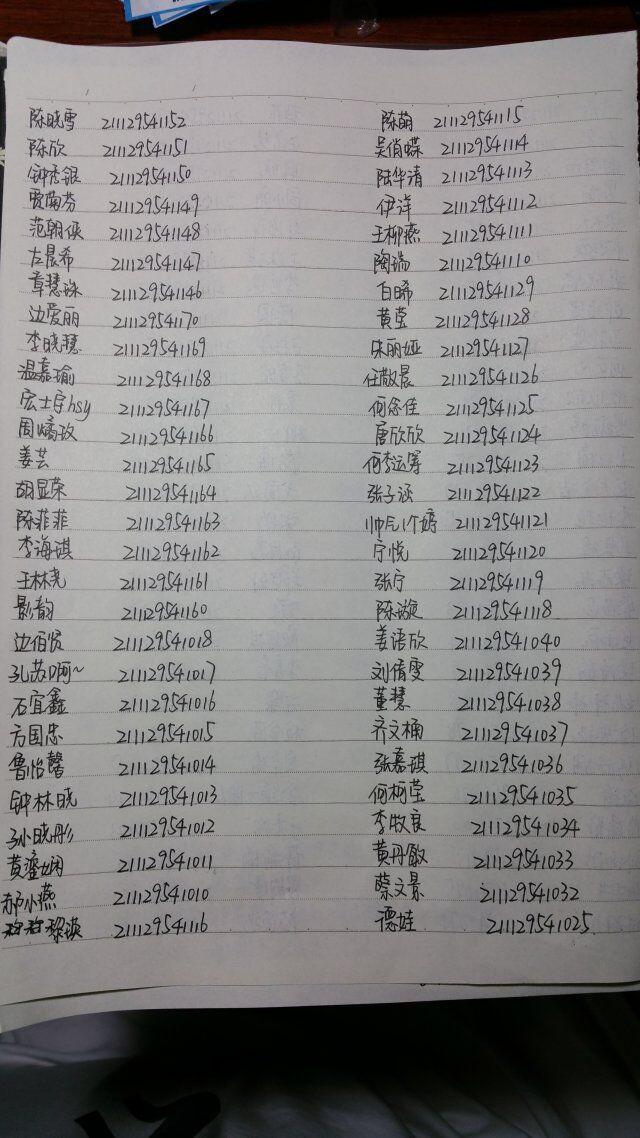 陈晓雪 211129541152
陈欣 211129541151
钟秀银 211129541150
贾菊芬 211129541149
范朝侠 211129541148
左晨希 211129541147
章慧珠 211129541146
边爱丽 211129541170
李晓慧 211129541169
温嘉瑜 211129541168
宏士宇hsy 211129541167
周嫡玫 211129541166
姜芸 211129541165
胡显荣 211129541164
陈菲菲 211129541163
李海琪 211129541162
王林尧 211129541161
影韵 211129541160
边伯贤 211129541018
孔苏啊~ 211129541017
石宜鑫 211129541016
方国忠 211129541015
鲁怡馨 211129541014
钟林晓 211129541013
孙晓彤 211129541012
黄娴 211129541011
郝小燕 211129541010
黎瑛 21112954116
陈萌 21112954115
吴俏蝶 21112954114
陆华清 21112954113
伊洋 21112954112
王柳燕 21112954111
陶瑞 21112954110
白晞 211129541129
黄莹 211129541128
朱丽娅 211129541127
任散晨 211129541126
何念佳 211129541125
唐欣欣 211129541124
何李运筹 211129541123
张子涵 211129541122
帅气1个婷 211129541121
宁悦 211129541120
张宁 21112954119
陈璇 21112954118
姜语欣 211129541040
刘倩雯 211129541039
董慧 211129541038
齐文楠 211129541037
张嘉琪 211129541036
何柯莹 211129541035
李牧良 211129541034
黄丹敏 211129541033
蔡文景 211129541032
德娃 211129541025